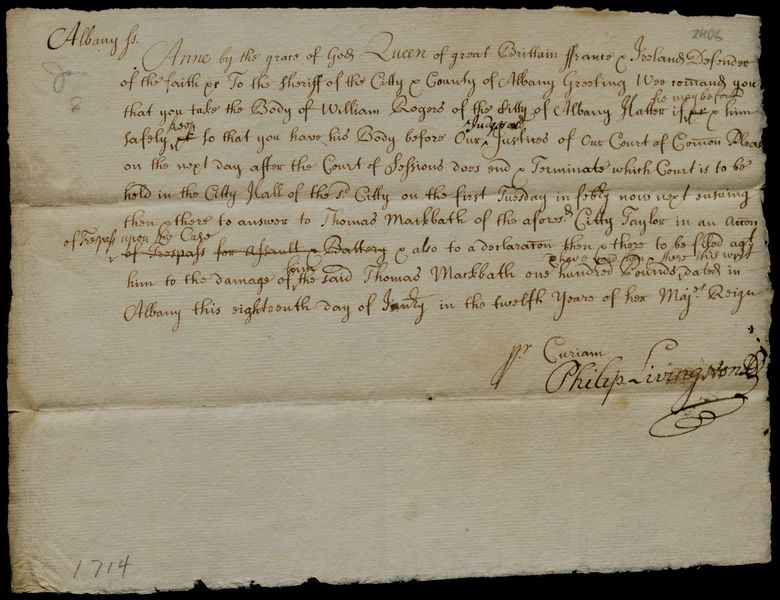 2406
Albany ss.
Anne by the grace of God Queen of great Brittain ffrance & Ireland Defender
Jan
8
of the faith &c To the Sheriff of the Citty & County of Albany Greeting Wee comand you
that you take the Body of William Rogers of the Citty of Albany Hatter if he may be found & him
safely keep so that you have his Body before Our Judge and Justices of Our Court of Comon Pleas
on the next day after the Court of Sessions does end & Terminate which Court is to be
held in the Citty Hall of the sd Citty on the first Tuesday in febry now next ensuing
then & there to answer to Thomas Mackbath of the afores.d Citty Taylor in an accon
of Trespass upon the Case
of Trespass for Assault & Battery & also to a declaraton then & there to be filed agt
& have you then there this writt
him to the damage of him the said Thomas Mackbath one hundred Pounds, dated in
Albany this eighteenth day of Janry in the twelfth Yeare of her Maj.ts Reign
pr Curiam
Philip Livingston
1714